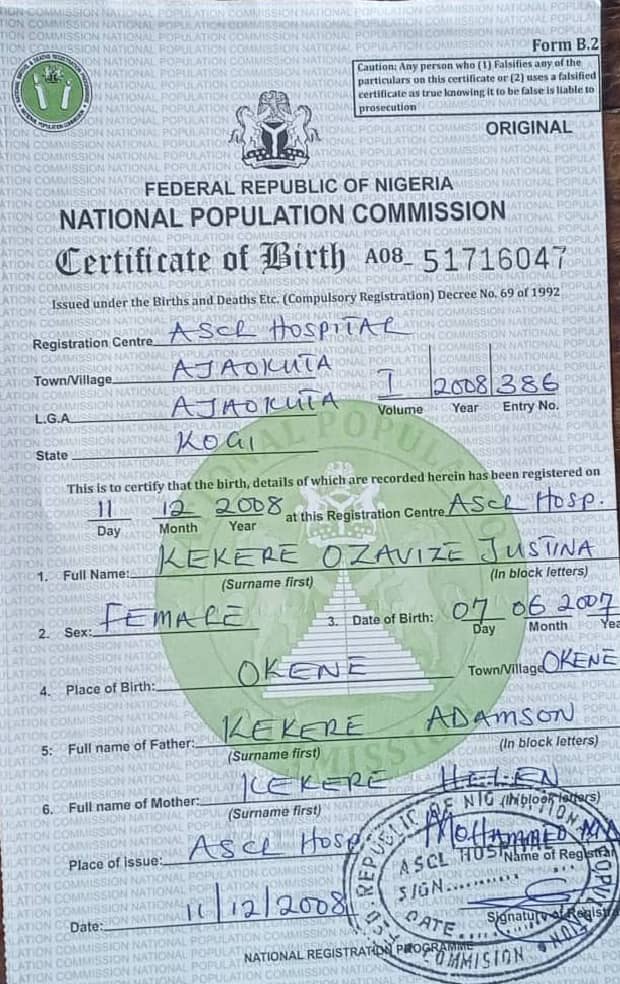 Form B.2
Caution: Any person who (1) Falsifies any of the
particulars on this certificate or (2) uses a falsified
certificate as true knowing it to be false is liable to
prosecution
ORIGINAL
FEDERAL REPUBLIC OF NIGERIA
NATIONAL POPULATION COMMISSION
Certificate of Birth A08- 51716047
Issued under the Births and Deaths Etc. (Compulsory Registration) Decree No. 69 of 1992
Registration Centre ASCL HOSPITAL
Town/Village AJAOKUTA
L.G.A AJAOKUTA
I 2008 386
Volume Year Entry No.
State KOGI
This is to certify that the birth, details of which are recorded herein has been registered on
11 12 2008 at this Registration Centre ASCL HOSP.
Day Month Year
1. Full Name: KEKERE OZAVIZE JUSTINA
(Surname first) (In block letters)
2. Sex: FEMALE 3. Date of Birth: 07 06 2007
Day Month Yea
4. Place of Birth: OKENE Town/Village OKENE
5: Full name of Father: KEKERE ADAMSON
(Surname first) (In block letters)
6. Full name of Mother: KEKERE HELEN
(Surname first) (In block letters)
MOHAMMED
Place of Issue: ASCL HOSP Name of Registrar
Date: 11/12/2008 Signature of Regist
ASCL HOSP
SIGN
DATE
NATIONAL REGISTRATION PROGRAMME